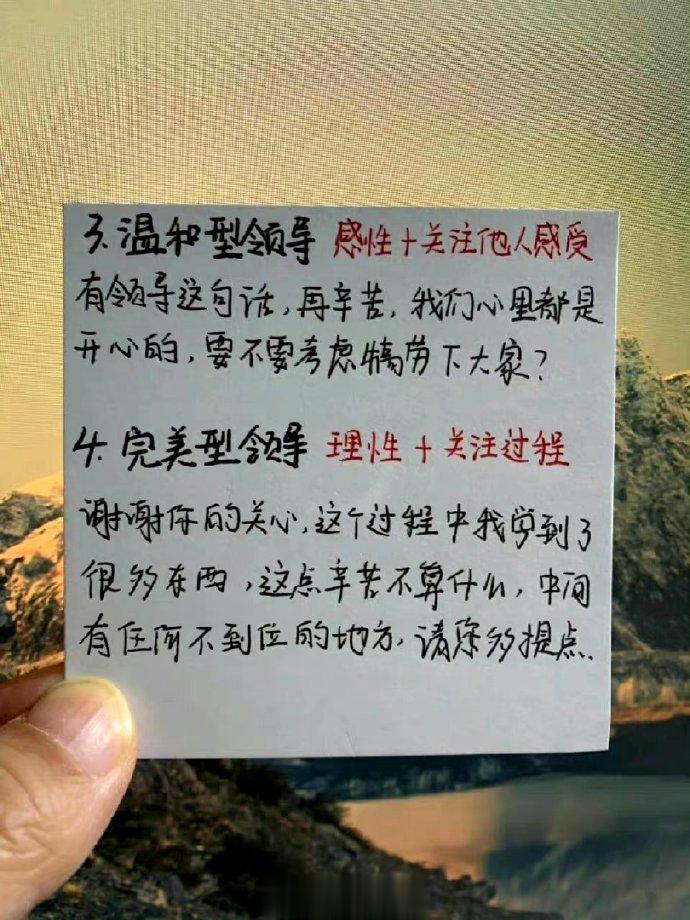 3.温和型领导 感性+关注他人感受
有领导这句话,再辛苦,我们心里都是
开心的,要不要考虑犒劳下大家?
4.完美型领导 理性+关注过程
谢谢你的关心,这个过程中我学到了
很多东西,这点辛苦不算什么,中间
有任何不到位的地方,请您多提点.